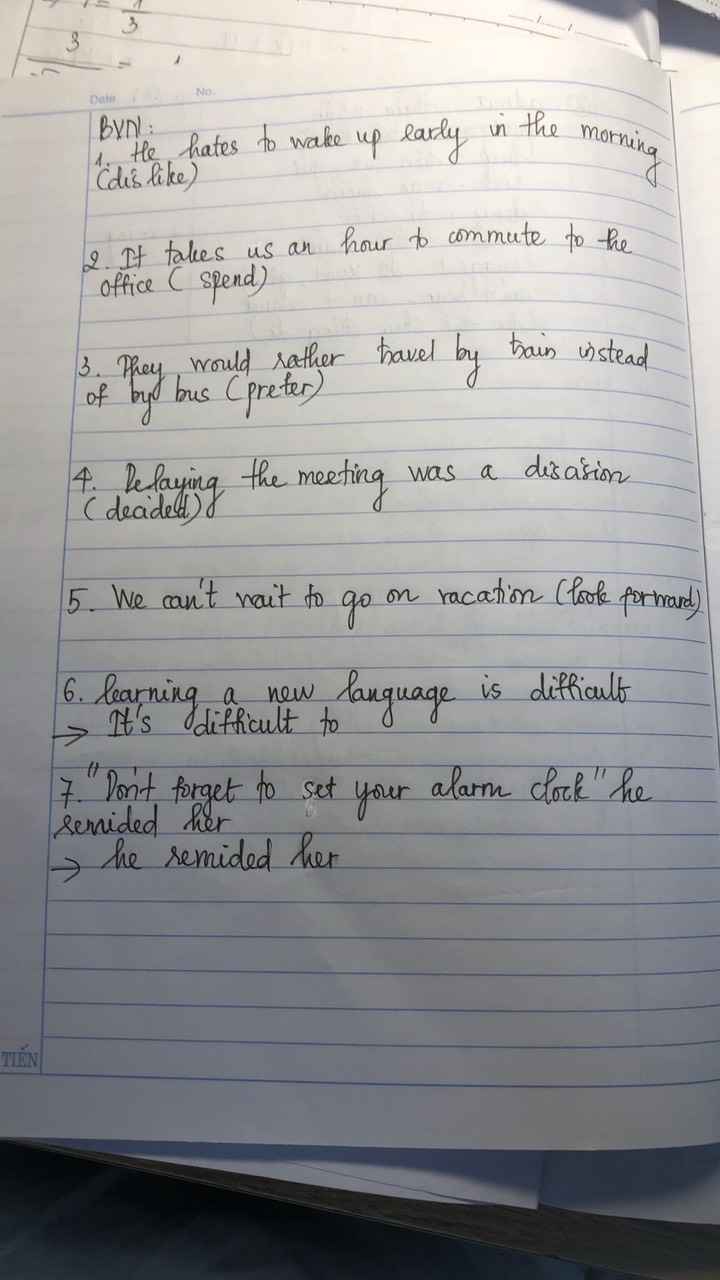 1 = 1/3
3
Date No.
BVN:
1. He hates to wake up early in the morning
(dislike)
2. It takes us an hour to commute to the
office ( spend)
3. They would rather travel by train instead
of by bus (prefer)
4. Delaying the meeting was a disasion
(decided)
5. We can't wait to go on vacation (look forward)
6. learning a new language is difficult
→ It's difficult to
7. "Don't forget to set your alarm clock" he
remided her
→ he remided her
TIẾN